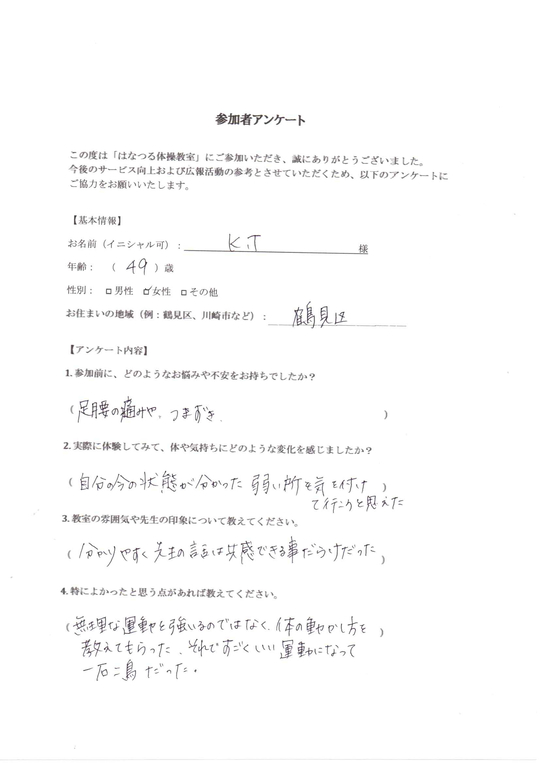 参加者アンケート
この度は「はなつる体操教室」にご参加いただき、誠にありがとうございました。
今後のサービス向上および広報活動の参考とさせていただくため、以下のアンケートに
ご協力をお願いいたします。
【基本情報】
お名前（イニシャル可）： K.T 様
年齢： （ 49 ）歳
性別： □男性 ☑女性 □その他
お住まいの地域（例：鶴見区、川崎市など）： 鶴見区
【アンケート内容】
1.参加前に、どのようなお悩みや不安をお持ちでしたか？
（足腰の痛みや、つまずき ）
2.実際に体験してみて、体や気持ちにどのような変化を感じましたか？
（自分の今の状態が分かった 弱い所を気を付け ）
て行こうと思えた
3.教室の雰囲気や先生の印象について教えてください。
（分かりやすく先生の話は共感できる事だらけだった ）
4.特によかったと思う点があれば教えてください。
（無理な運動を強いるのではなく、体の動かし方を ）
教えてもらった、それですごくいい運動になって
一石二鳥だった。